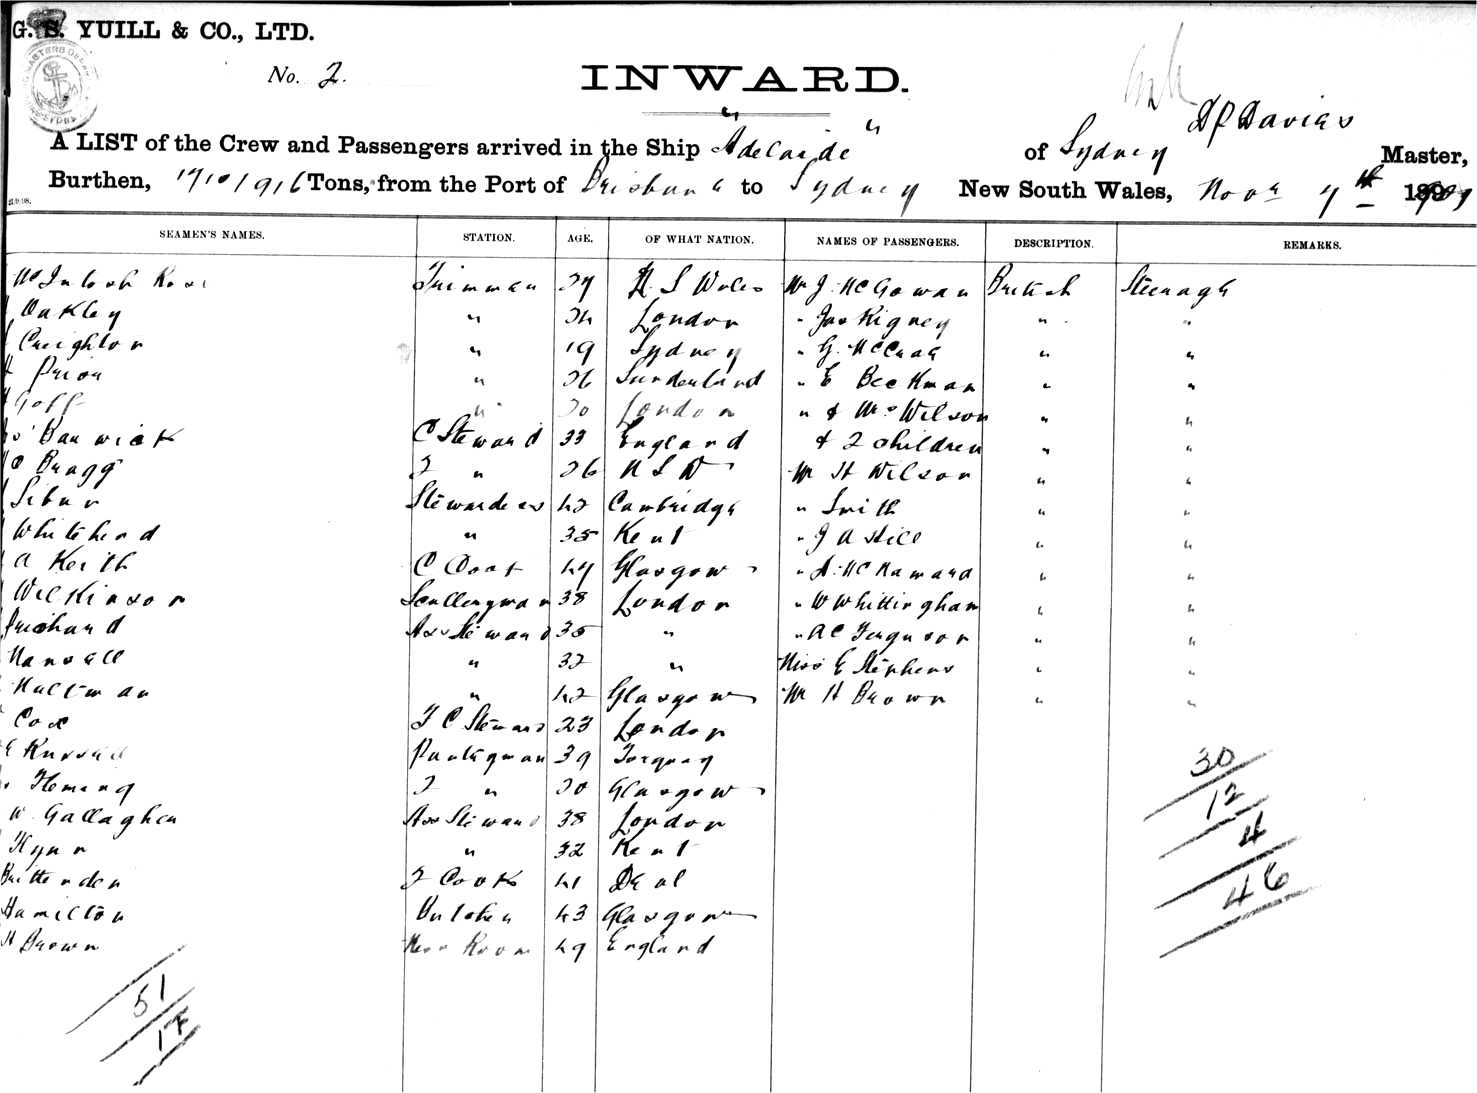 G. S. YUILL & CO., LTD.
No. 2.
INWARD.
D P Davies
A LIST of the Crew and Passengers arrived in the Ship "Adelaide" of Sydney Master,
Burthen, Tons, from the Port of Brisbane to Sydney New South Wales, Novr 7th
SEAMEN'S NAMES. STATION. AGE. OF WHAT NATION. NAMES OF PASSENGERS. DESCRIPTION. REMARKS.
McIntosh Ross Trimmer 27 N. S Wales Mr J. McGowan British Steerage
Oakley " 24 London " Jas Rigney " "
Creighton " 19 Sydney " G. McCrae " "
Prior " 26 Sunderland " E Beckman " "
Goff " 20 London " & Mrs Wilson " "
Banwick C Steward 33 England & 2 children " "
Bragg 2 " 26 N S W Mr H Wilson " "
Stewardess 42 Cambridge " Smith " "
Whitehead " 35 Kent " J A Hill " "
A Keith C Cook 47 Glasgow " A. McNamara " "
Wilkinson Sculleryman 38 London " W Whittingham " "
Prichard Ass Steward 35 " " A C Ferguson " "
Mansell " 32 " Miss E Stephens " "
Hultman " 42 Glasgow Mr H Brown " "
Cox F C Steward 23 London
E Russell Pantryman 39 Torquay
30
Fleming 2 " 20 Glasgow
12
W. Gallagher Ass Steward 38 London
4
Kyne " 32 Kent
Brittenden 2 Cook 41 Deal
46
Hamilton Butcher 43 Glasgow
H Brown Mess Room 49 England
51
17